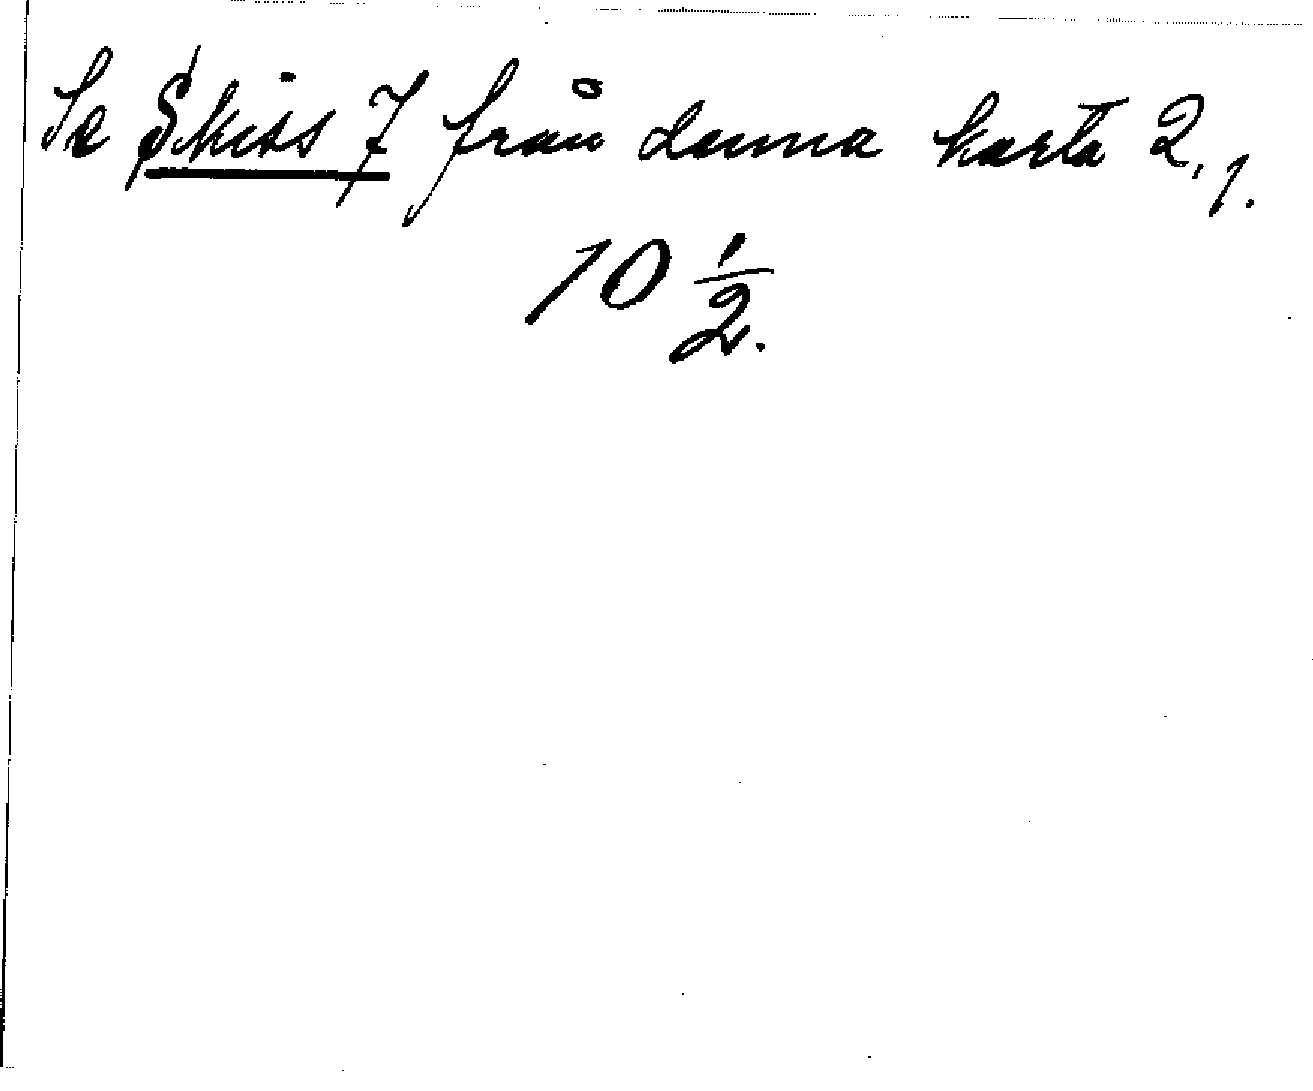 Se Skiss 7 från denna karta 2, 1.
10 1/2.